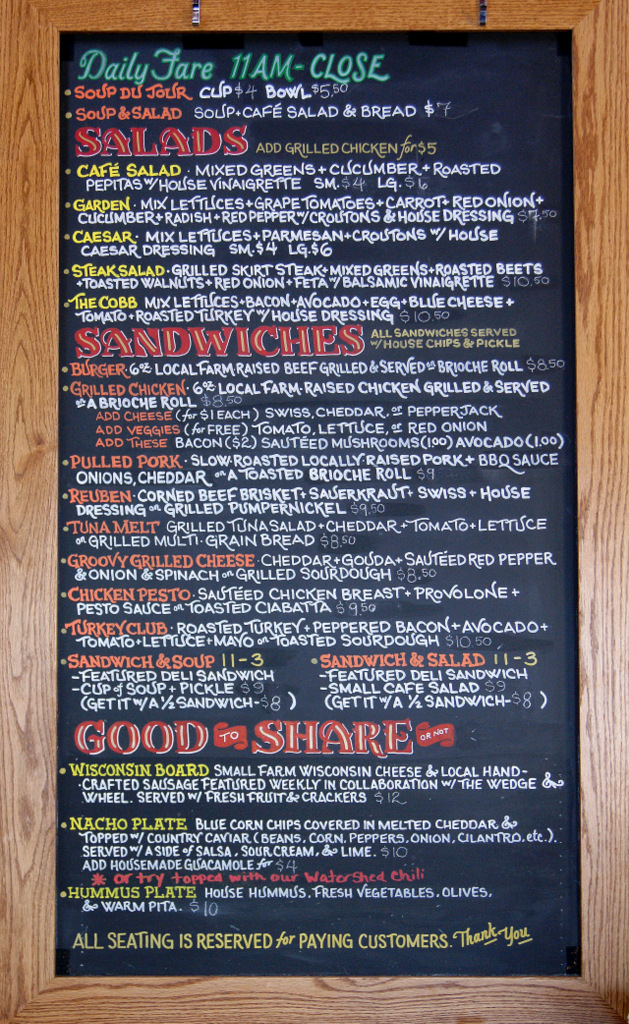 Daily Fare 11AM-CLOSE
• SOUP DU JOUR CUP $4 BOWL $5.50
• SOUP & SALAD SOUP + CAFÉ SALAD & BREAD $7
SALADS ADD GRILLED CHICKEN for $5
• CAFÉ SALAD · MIXED GREENS + CUCUMBER + ROASTED
PEPITAS W/ HOUSE VINAIGRETTE SM. $4 LG. $6
• GARDEN · MIX LETTUCES + GRAPE TOMATOES + CARROT + RED ONION +
CUCUMBER + RADISH + RED PEPPER W/ CROUTONS & HOUSE DRESSING $7.50
• CAESAR · MIX LETTUCES + PARMESAN + CROUTONS W/ HOUSE
CAESAR DRESSING SM. $4 LG. $6
• STEAK SALAD · GRILLED SKIRT STEAK + MIXED GREENS + ROASTED BEETS
+ TOASTED WALNUTS + RED ONION + FETA W/ BALSAMIC VINAIGRETTE $10.50
• THE COBB MIX LETTUCES + BACON + AVOCADO + EGG + BLUE CHEESE +
TOMATO + ROASTED TURKEY W/ HOUSE DRESSING $10.50
SANDWICHES ALL SANDWICHES SERVED
W/ HOUSE CHIPS & PICKLE
• BURGER · 6oz LOCAL FARM-RAISED BEEF GRILLED & SERVED on BRIOCHE ROLL $8.50
• GRILLED CHICKEN · 6oz LOCAL FARM-RAISED CHICKEN GRILLED & SERVED
on A BRIOCHE ROLL $8.50
ADD CHEESE (for $1 EACH) SWISS, CHEDDAR, or PEPPERJACK
ADD VEGGIES (for FREE) TOMATO, LETTUCE, or RED ONION
ADD THESE BACON ($2) SAUTÉED MUSHROOMS (1.00) AVOCADO (1.00)
• PULLED PORK · SLOW-ROASTED LOCALLY-RAISED PORK + BBQ SAUCE
ONIONS, CHEDDAR on A TOASTED BRIOCHE ROLL $9
• REUBEN · CORNED BEEF BRISKET + SAUERKRAUT + SWISS + HOUSE
DRESSING on GRILLED PUMPERNICKEL $9.50
• TUNA MELT GRILLED TUNA SALAD + CHEDDAR + TOMATO + LETTUCE
on GRILLED MULTI-GRAIN BREAD $8.50
• GROOVY GRILLED CHEESE · CHEDDAR + GOUDA + SAUTÉED RED PEPPER
& ONION & SPINACH on GRILLED SOURDOUGH $8.50
• CHICKEN PESTO · SAUTÉED CHICKEN BREAST + PROVOLONE +
PESTO SAUCE on TOASTED CIABATTA $9.50
• TURKEY CLUB · ROASTED TURKEY + PEPPERED BACON + AVOCADO +
TOMATO + LETTUCE + MAYO on TOASTED SOURDOUGH $10.50
• SANDWICH & SOUP 11-3
- FEATURED DELI SANDWICH
- CUP of SOUP + PICKLE $9
(GET IT W/ A ½ SANDWICH - $8)
• SANDWICH & SALAD 11-3
- FEATURED DELI SANDWICH
- SMALL CAFE SALAD $9
(GET IT W/ A ½ SANDWICH - $8)
GOOD TO SHARE OR NOT
• WISCONSIN BOARD SMALL FARM WISCONSIN CHEESE & LOCAL HAND-
CRAFTED SAUSAGE FEATURED WEEKLY IN COLLABORATION W/ THE WEDGE &
WHEEL. SERVED W/ FRESH FRUIT & CRACKERS $12
• NACHO PLATE BLUE CORN CHIPS COVERED IN MELTED CHEDDAR &
TOPPED W/ COUNTRY CAVIAR (BEANS, CORN, PEPPERS, ONION, CILANTRO, etc.).
SERVED W/ A SIDE of SALSA, SOUR CREAM, & LIME. $10
ADD HOUSEMADE GUACAMOLE for $4
* or try topped with our Watershed Chili
• HUMMUS PLATE HOUSE HUMMUS, FRESH VEGETABLES, OLIVES,
& WARM PITA. $10
ALL SEATING IS RESERVED for PAYING CUSTOMERS. Thank You